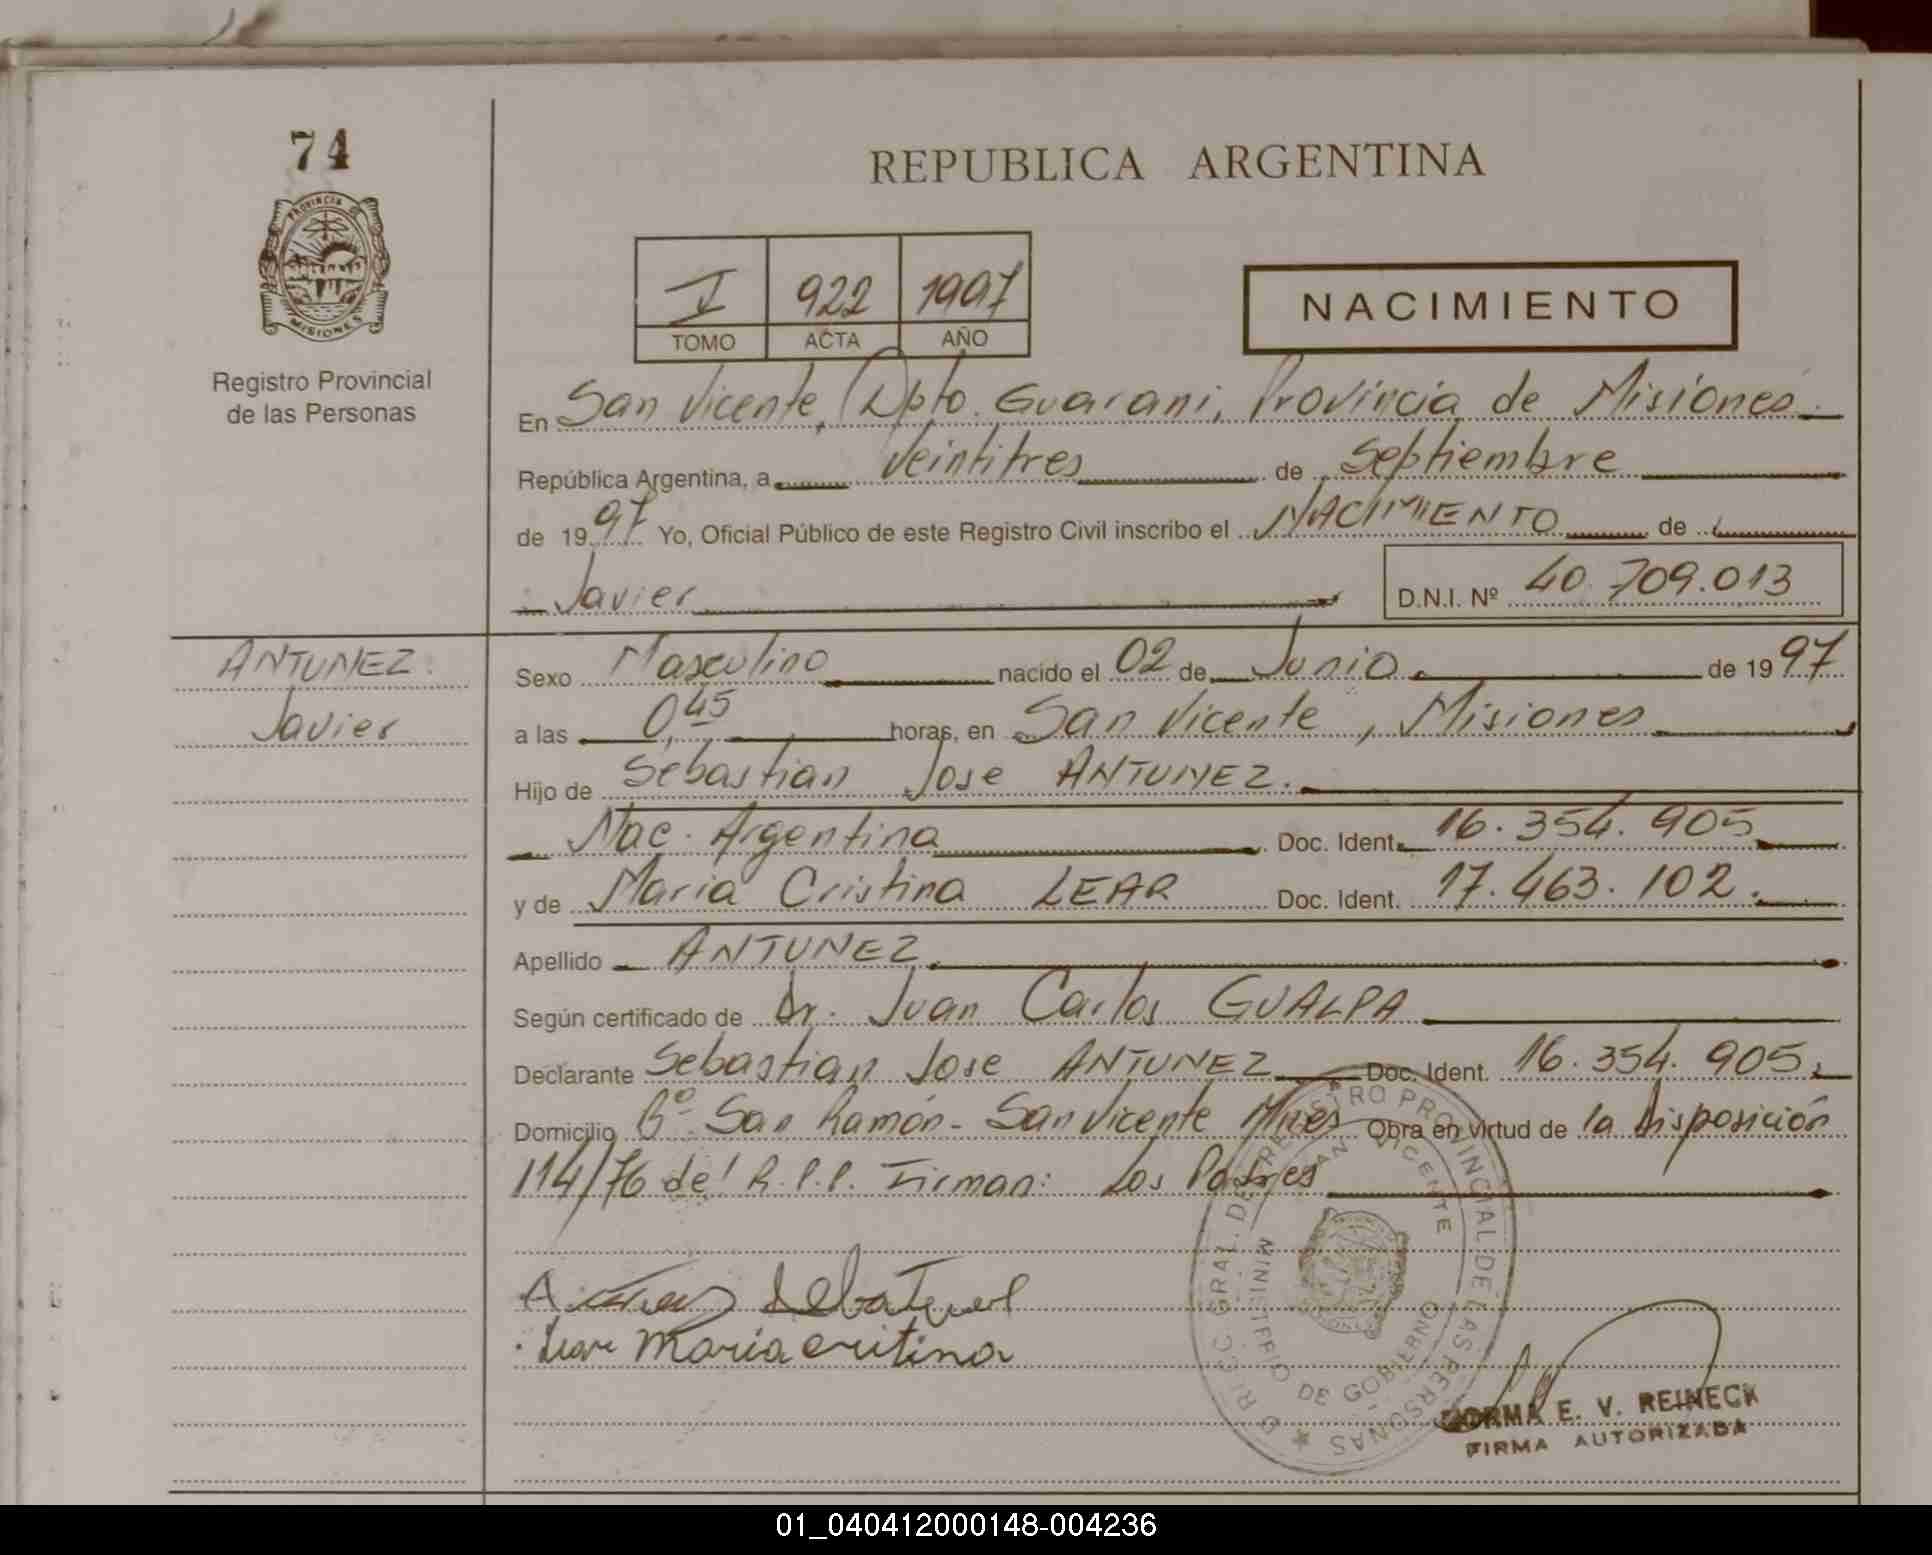 74
REPUBLICA ARGENTINA
PROVINCIA DE
MISIONES
Registro Provincial
de las Personas
I 922 1997
TOMO ACTA AÑO
NACIMIENTO
En San Vicente, Dpto. Guarani, Provincia de Misiones.
República Argentina, a veintitres de Septiembre
de 1997 Yo, Oficial Público de este Registro Civil inscribo el NACIMIENTO de
Javier
D.N.I. Nº 40.709.013
ANTUNEZ.
Javier
Sexo Masculino nacido el 02 de Junio de 1997
a las 0,45 horas, en San Vicente, Misiones
Hijo de Sebastian Jose ANTUNEZ.
Nac. Argentina Doc. Ident. 16.354.905
y de Maria Cristina LEAR Doc. Ident. 17.463.102.
Apellido ANTUNEZ
Según certificado de Dr. Juan Carlos GUALPA
Declarante Sebastian Jose ANTUNEZ Doc. Ident. 16.354.905.
Domicilio Bº San Ramón - San Vicente Mnes Obra en virtud de la Disposición
114/76 del R.P.P. Firman: Los Padres
Lear Maria critina
DIREC. GRAL. DEL REGISTRO PROVINCIAL DE LAS PERSONAS
SAN VICENTE
MINISTERIO DE GOBIERNO
NORMA E. V. REINECK
FIRMA AUTORIZADA
01_040412000148-004236